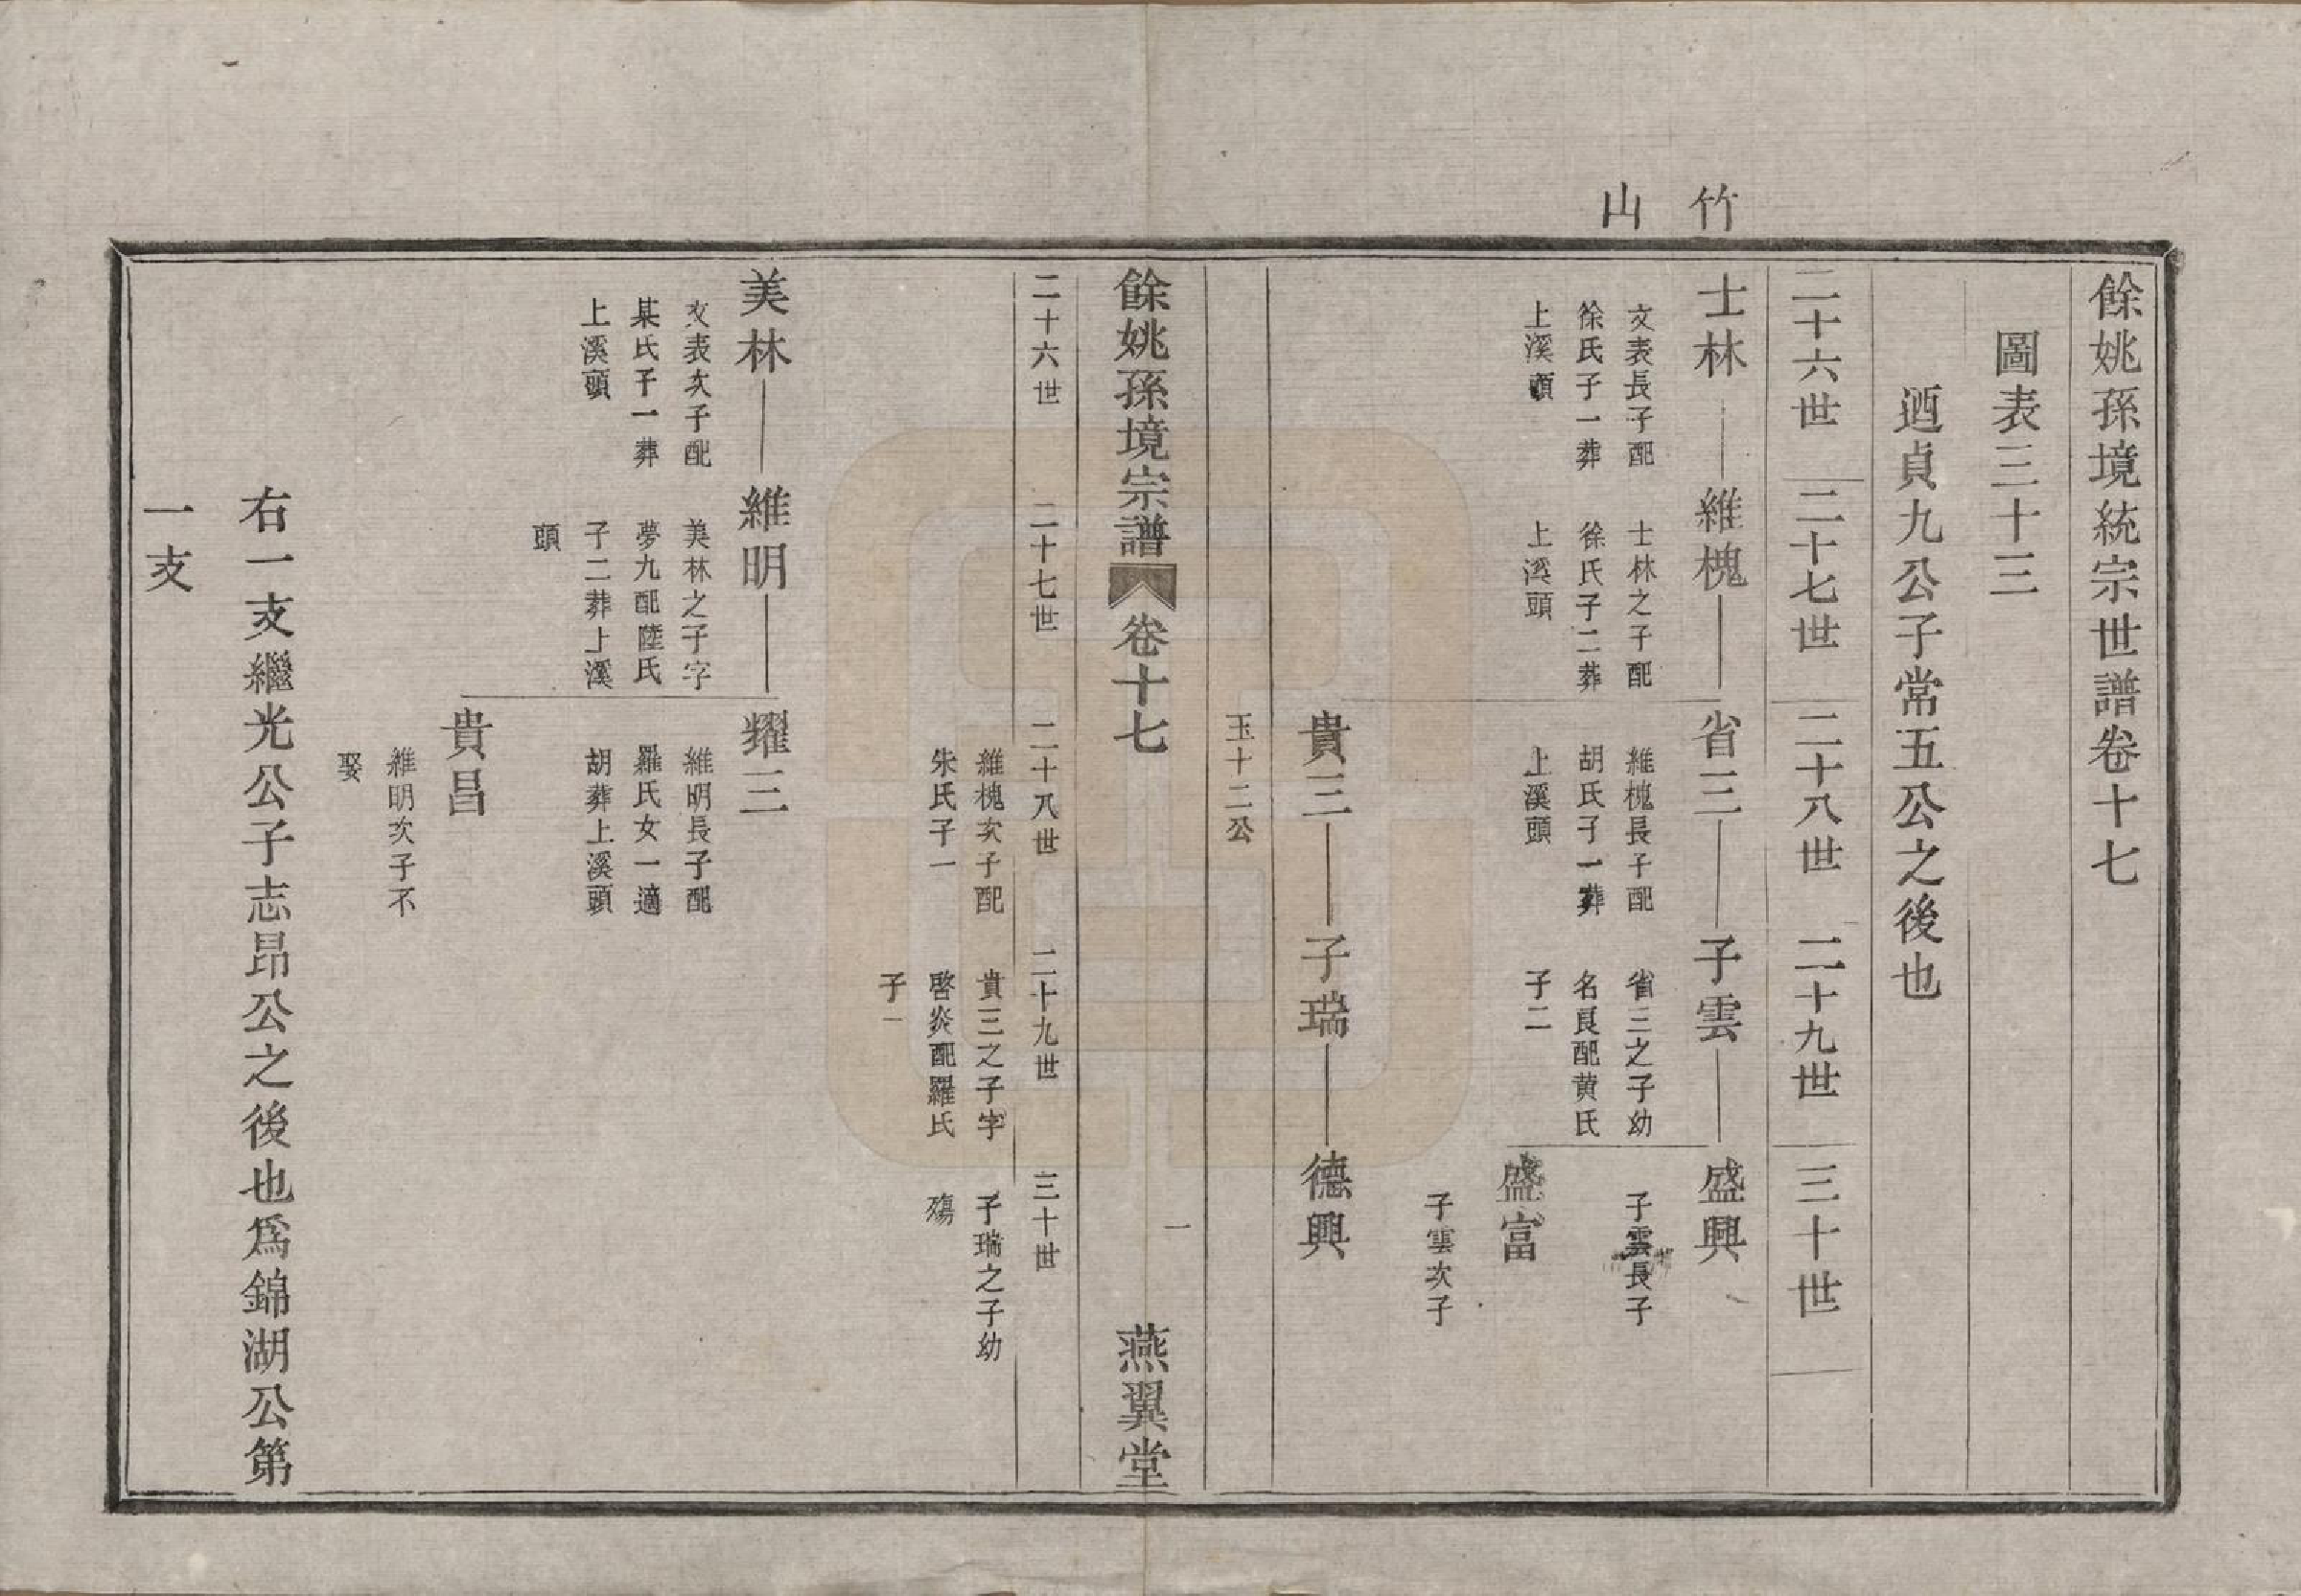 竹山
餘姚孫境統宗世譜卷十七
圖表三十三
迺貞九公子常五公之後也
二十六世 二十七世 二十八世 二十九世 三十世
士林 維槐 省三 子雲 盛興
文表長子配 士林之子配 維槐長子配 省三之子幼 子雲長子
徐氏子一葬 徐氏子二葬 胡氏子一葬 名良配黄氏
上溪頭 上溪頭 上溪頭 子二
盛富
子雲次子
貴三 子瑞 德興
玉十二公
一
餘姚孫境宗譜 卷十七 燕翼堂
二十六世 二十七世 二十八世 二十九世 三十世
維槐次子配 貴三之子字 子瑞之子幼
朱氏子一 啓炎配羅氏 殤
子一
美林 維明 耀三
文表次子配 美林之子字 維明長子配
某氏子一葬 夢九配陸氏 羅氏女一適
上溪頭 子二葬上溪 胡葬上溪頭
頭
貴昌
維明次子不
娶
右一支繼光公子志昂公之後也爲錦湖公第
一支